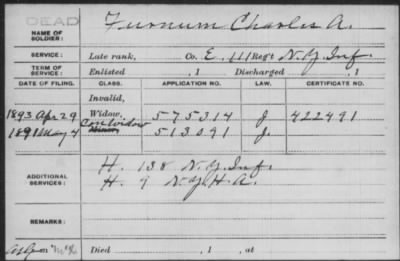 DEAD
NAME OF SOLDIER: Furnum Charles A.
SERVICE: Late rank, Co. E, 111 Reg't N.Y. Inf.
TERM OF SERVICE: Enlisted , 1 Discharged , 1
DATE OF FILING. CLASS. APPLICATION NO. LAW. CERTIFICATE NO.
Invalid,
1893 Apr 29 Widow, 575314 J 422491
1891 May 4 Con Widow Minor, 513091 J.
ADDITIONAL SERVICES: H. 138 N.Y. Inf.
H. 9 N.Y.H.A.
REMARKS:
Died , 1 , at